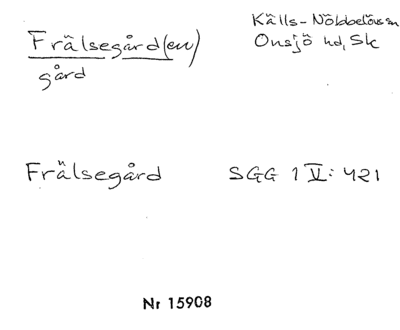 Frälsegård(en)
gård
Källs-Nöbbelövs sn
Onsjö hd, Sk
Frälsegård SGG 1 V: 421
Nr 15908